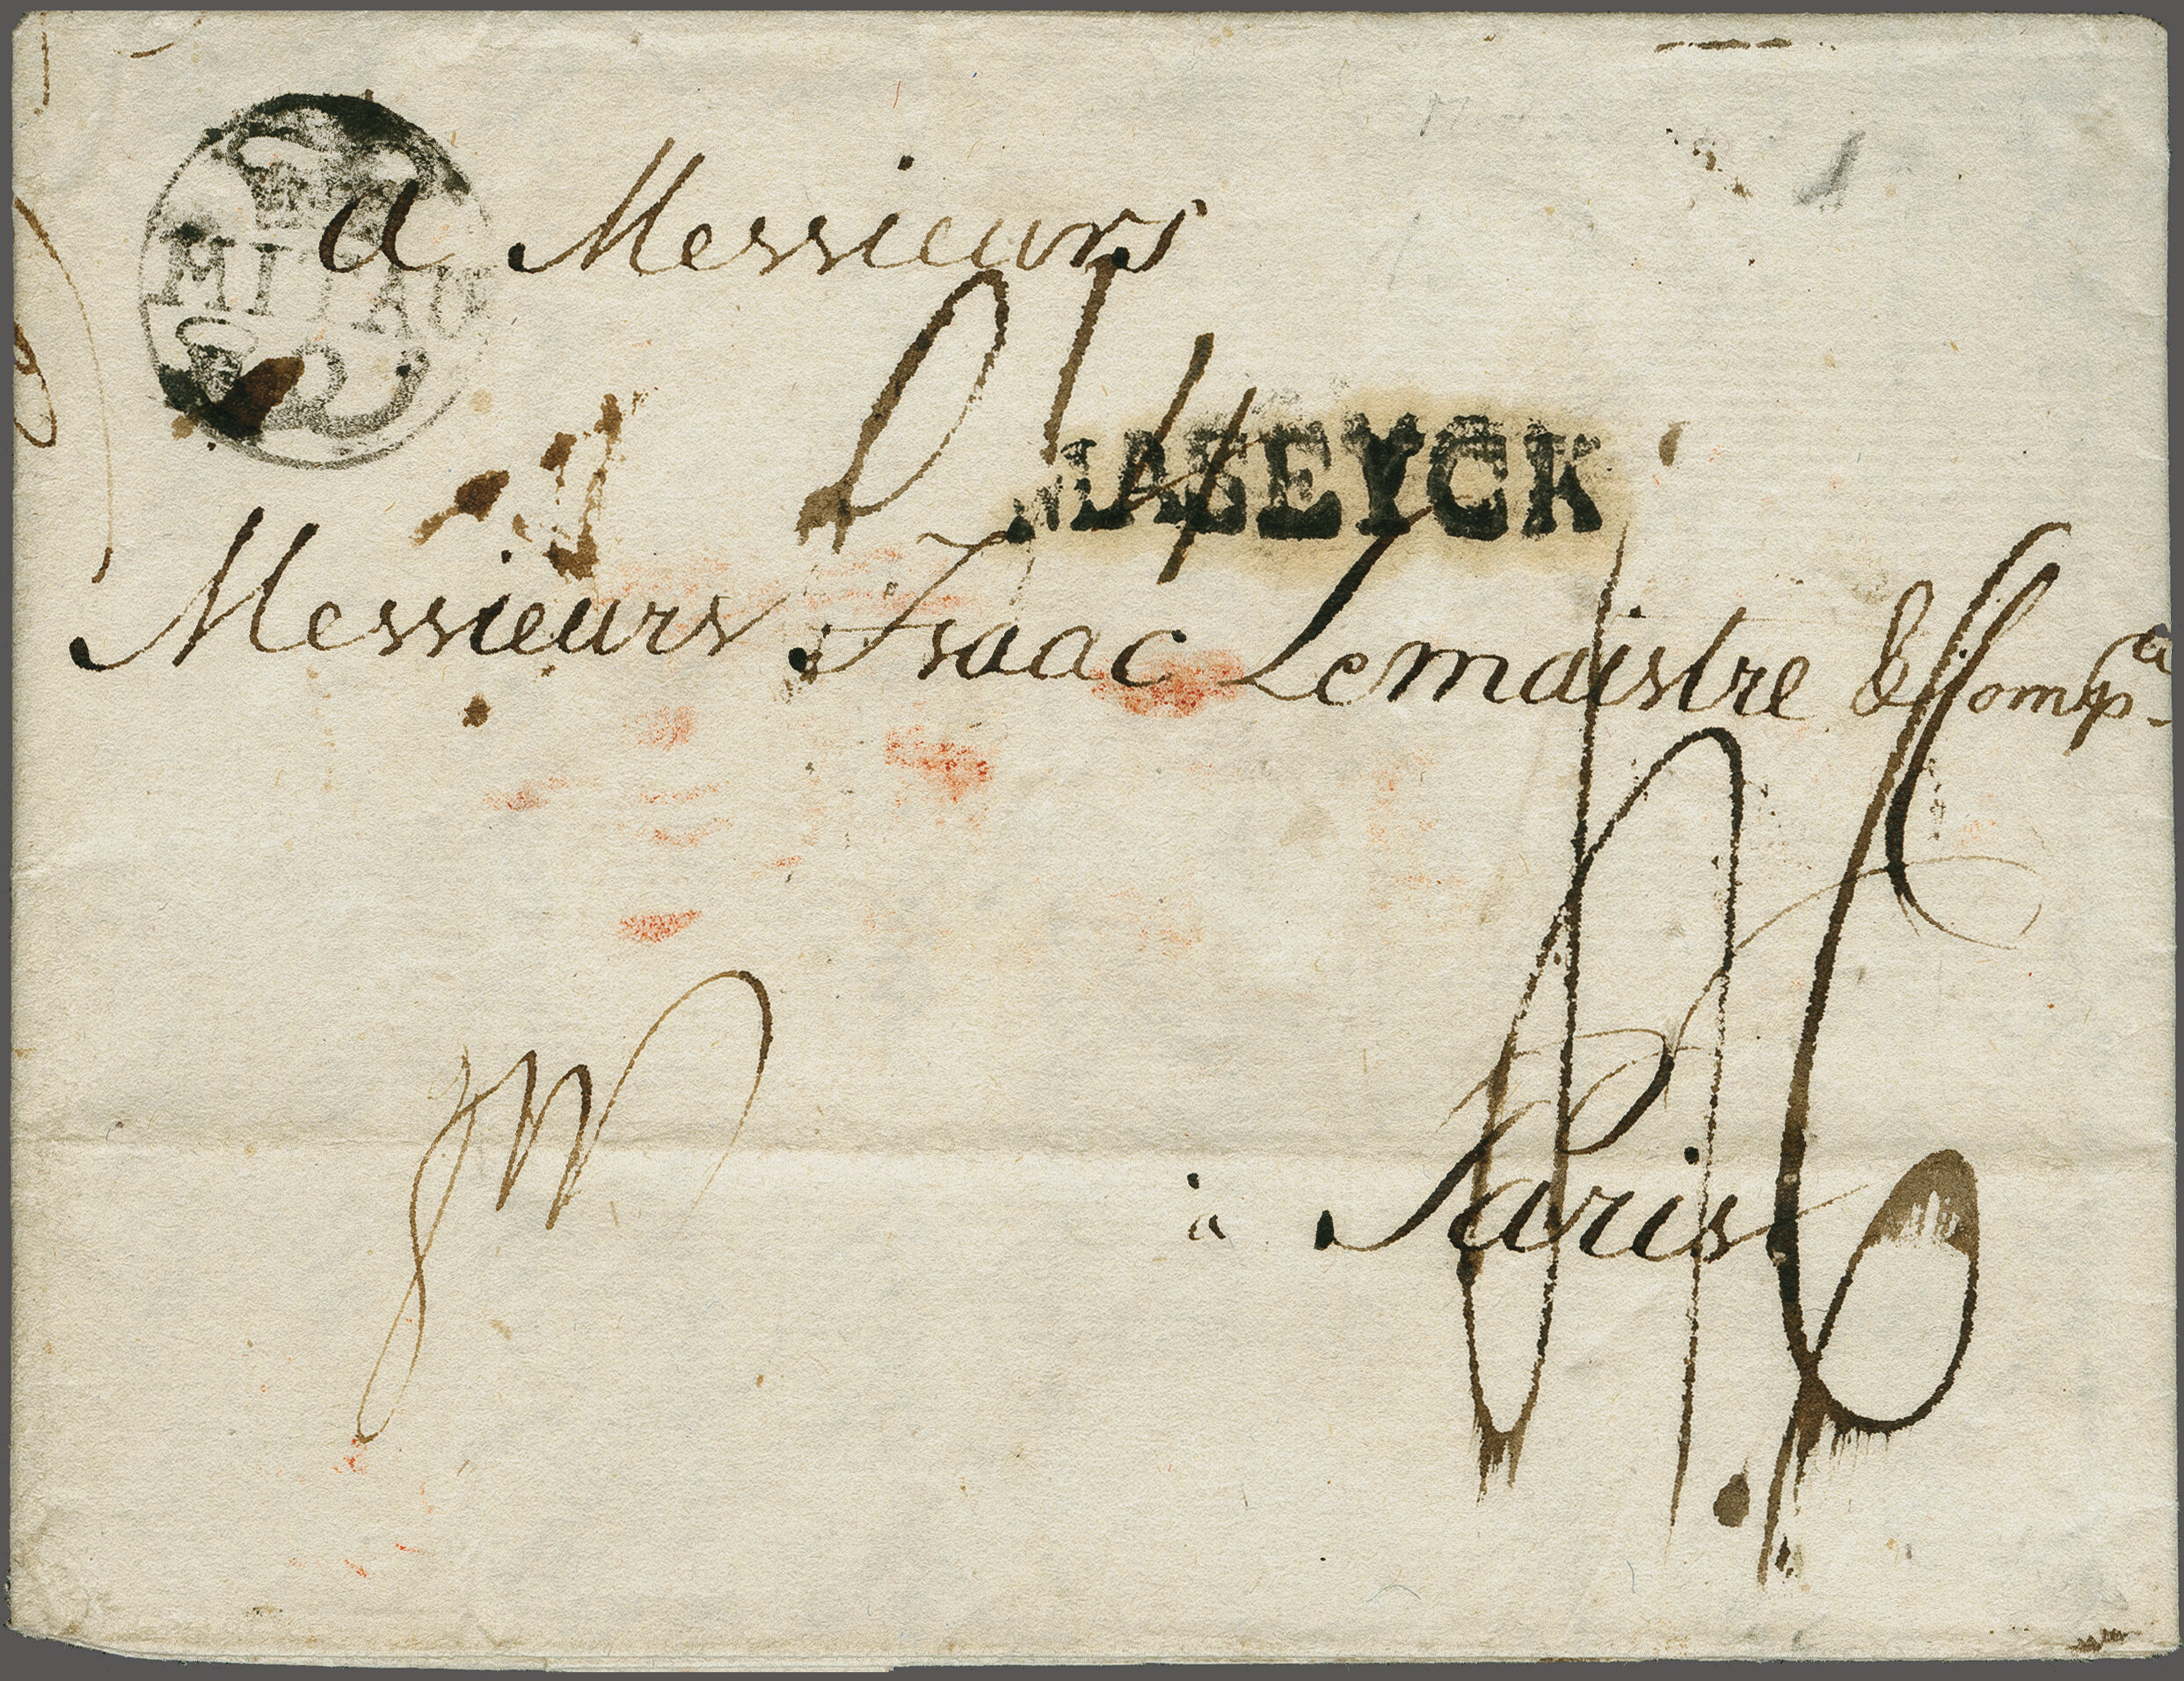 MITAU
a Messieurs
MASEYCK
Messieurs Isaac Lemaistre & Comp.a
à Paris